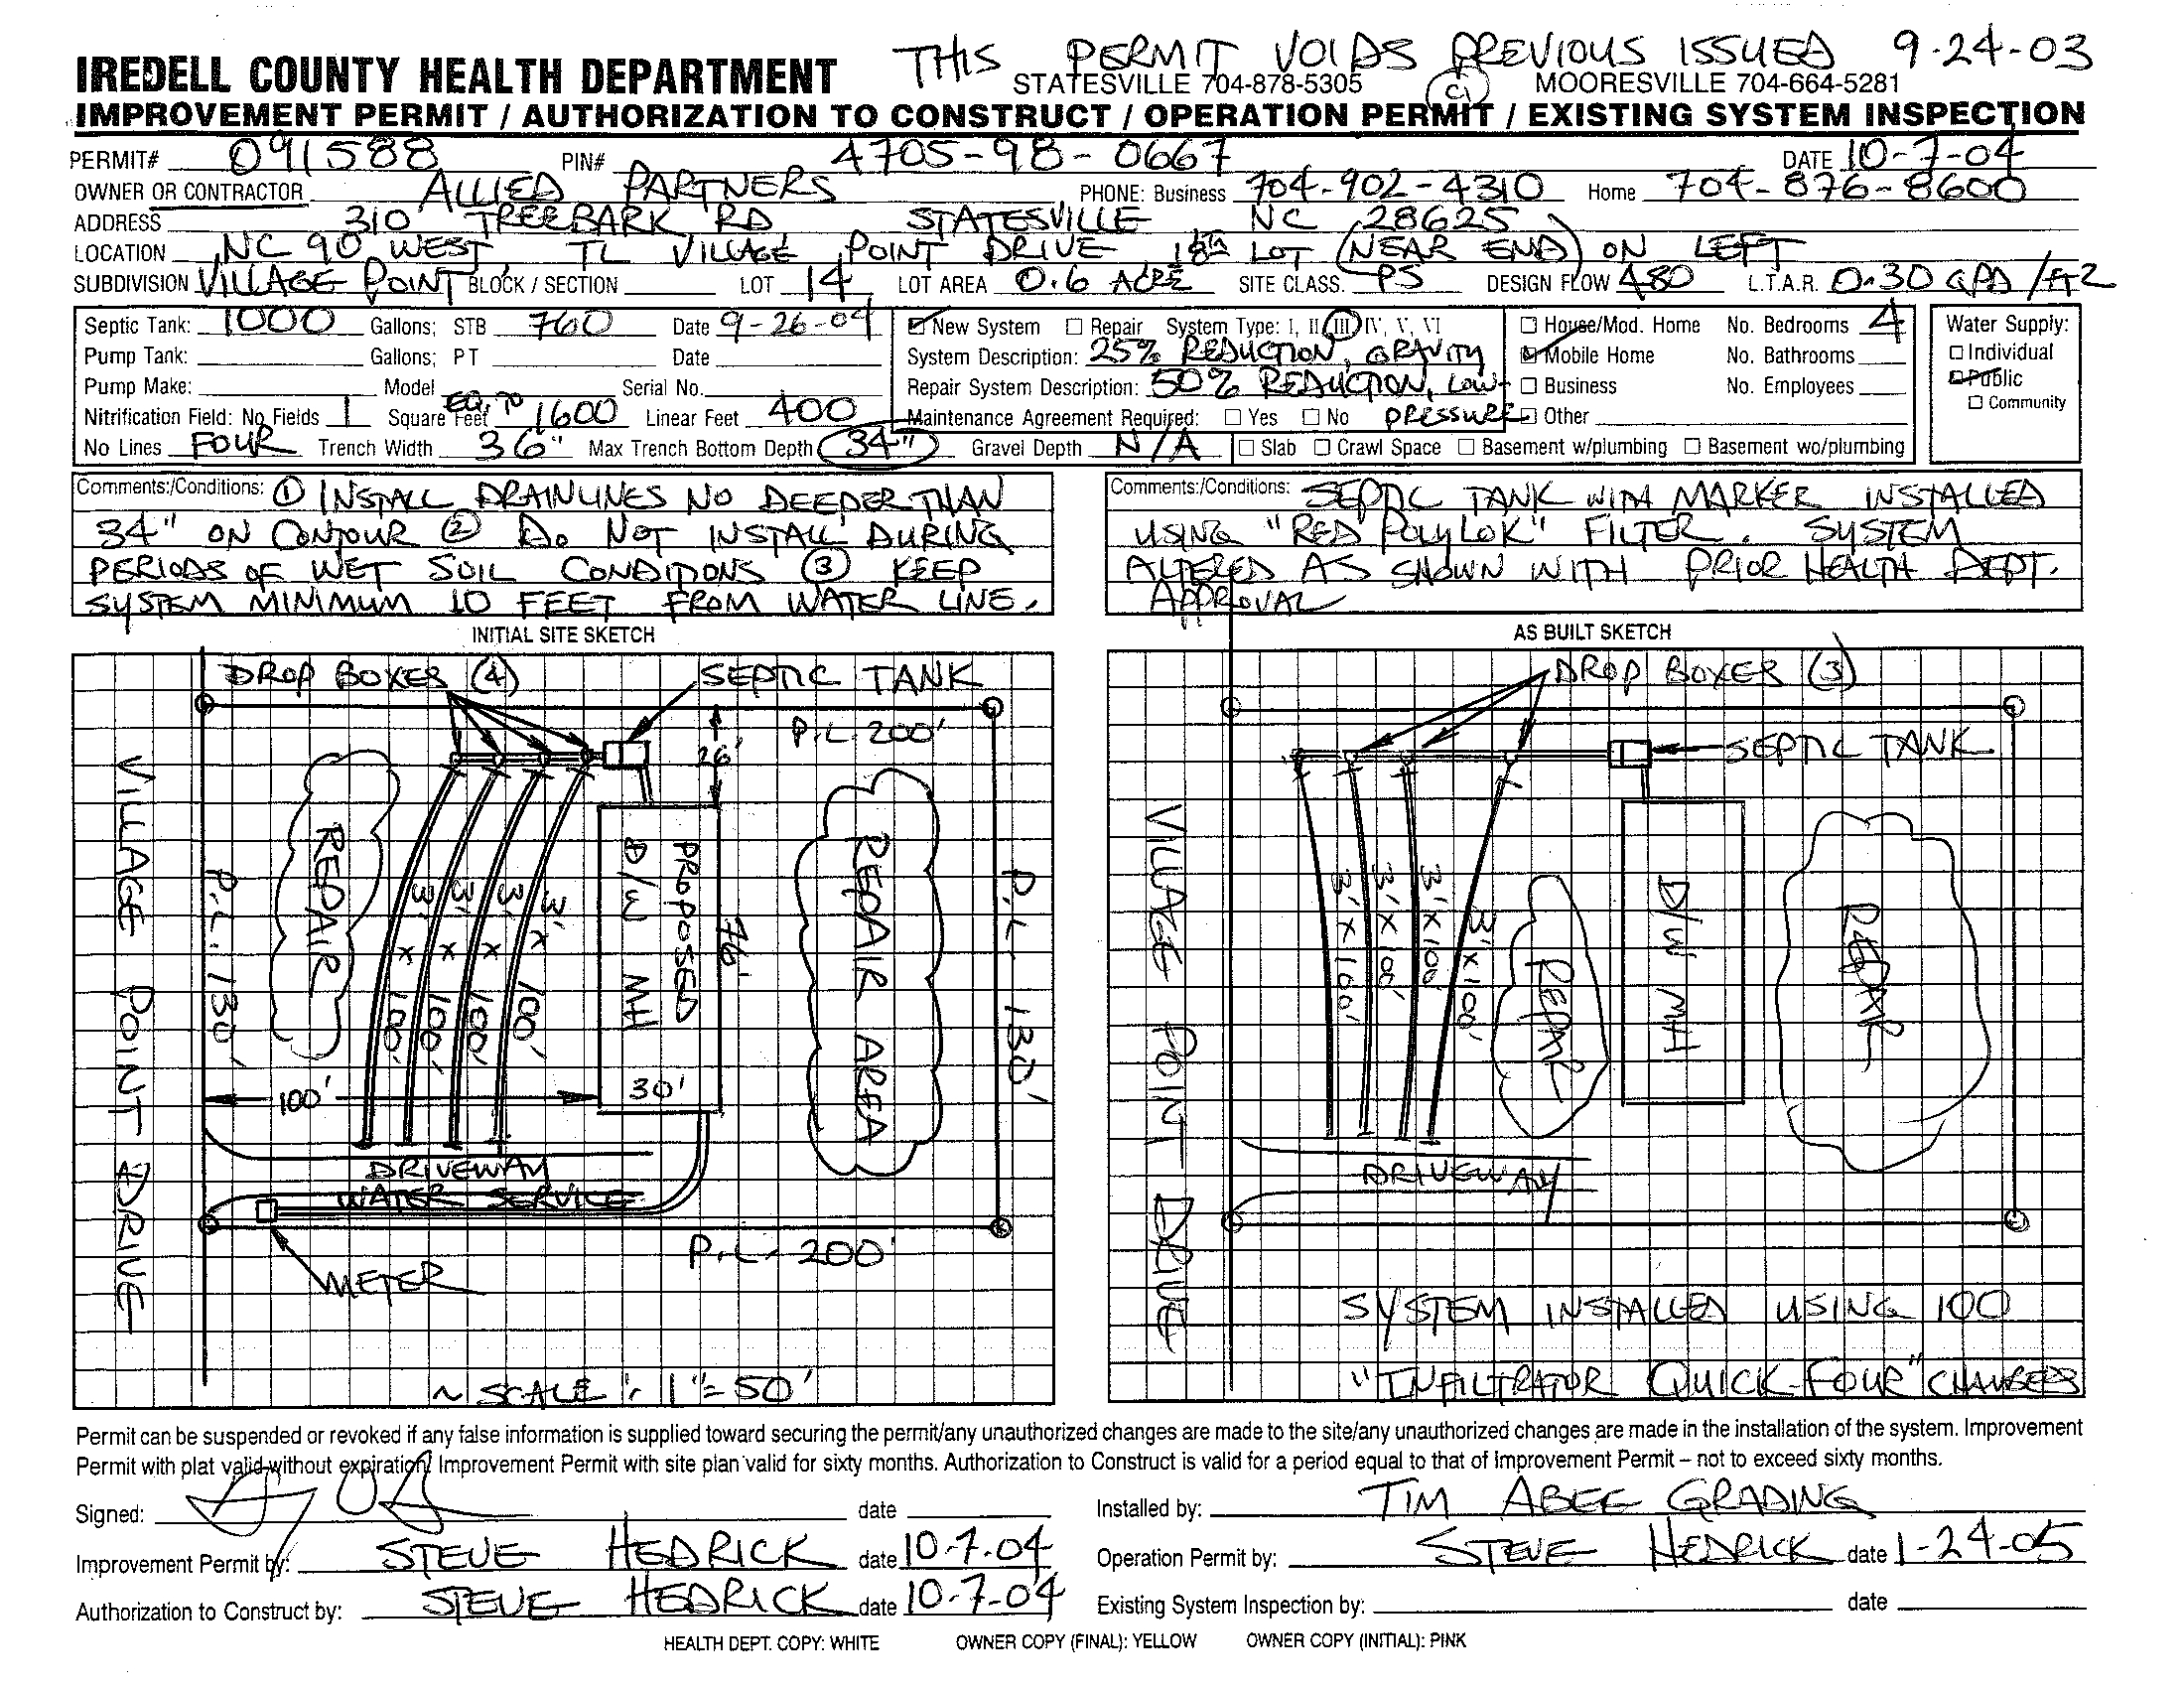 THIS PERMIT VOIDS PREVIOUS ISSUED 9-24-03
IREDELL COUNTY HEALTH DEPARTMENT STATESVILLE 704-878-5305 MOORESVILLE 704-664-5281
IMPROVEMENT PERMIT / AUTHORIZATION TO CONSTRUCT / OPERATION PERMIT / EXISTING SYSTEM INSPECTION
PERMIT# 091588 PIN# 4705-98-0667 DATE 10-7-04
OWNER OR CONTRACTOR ALLIED PARTNERS PHONE: Business 704-902-4310 Home 704-876-8600
ADDRESS 310 TREEBARK RD STATESVILLE NC 28625
LOCATION NC 90 WEST, TL VILLAGE POINT DRIVE 18th LOT (NEAR END) ON LEFT
SUBDIVISION VILLAGE POINT BLOCK / SECTION LOT 14 LOT AREA 0.6 ACRE SITE CLASS. PS DESIGN FLOW 480 L.T.A.R. 0.30 GPD/ft2
Septic Tank: 1000 Gallons; STB 760 Date 9-26-04
Pump Tank: Gallons; PT Date
Pump Make: Model Serial No.
Nitrification Field: No Fields 1 Square Feet EQ. TO 1600 Linear Feet 400
No Lines FOUR Trench Width 36" Max Trench Bottom Depth 34" Gravel Depth N/A
New System Repair System Type: I, II, III, IV, V, VI
System Description: 25% REDUCTION, GRAVITY
Repair System Description: 50% REDUCTION, LOW PRESSURE
Maintenance Agreement Required: Yes No
House/Mod. Home No. Bedrooms 4
Mobile Home No. Bathrooms
Business No. Employees
Other
Slab Crawl Space Basement w/plumbing Basement wo/plumbing
Water Supply:
Individual
Public
Community
Comments:/Conditions: ① INSTALL DRAINLINES NO DEEPER THAN
34" ON CONTOUR ② DO NOT INSTALL DURING
PERIODS OF WET SOIL CONDITIONS ③ KEEP
SYSTEM MINIMUM 10 FEET FROM WATER LINE.
Comments:/Conditions: SEPTIC TANK WITH MARKER INSTALLED
USING "RED POLYLOK" FILTER. SYSTEM
ALTERED AS SHOWN WITH PRIOR HEALTH DEPT.
APPROVAL
INITIAL SITE SKETCH
DROP BOXES (4)
SEPTIC TANK
P.L. 200'
26'
VILLAGE POINT DRIVE
P.L. 130'
REPAIR
3' x 100'
3' x 100'
3' x 100'
3' x 100'
PROPOSED
D/W MH
76'
30'
REPAIR AREA
P.L. 130'
100'
DRIVEWAY
WATER SERVICE
P.L. 200'
METER
~ SCALE: 1"=50'
AS BUILT SKETCH
DROP BOXES (3)
SEPTIC TANK
VILLAGE POINT DRIVE
3'X100'
3'X100'
3'X100'
3'X100'
REPAIR
D/W MH
REPAIR
DRIVEWAY
SYSTEM INSTALLED USING 100
"INFILTRATOR QUICK-FOUR" CHAMBERS
Permit can be suspended or revoked if any false information is supplied toward securing the permit/any unauthorized changes are made to the site/any unauthorized changes are made in the installation of the system. Improvement
Permit with plat valid without expiration. Improvement Permit with site plan valid for sixty months. Authorization to Construct is valid for a period equal to that of Improvement Permit – not to exceed sixty months.
Signed: date
Improvement Permit by: STEVE HEDRICK date 10-7-04
Authorization to Construct by: STEVE HEDRICK date 10-7-04
Installed by: TIM ABEE GRADING
Operation Permit by: STEVE HEDRICK date 1-24-05
Existing System Inspection by: date
HEALTH DEPT. COPY: WHITE OWNER COPY (FINAL): YELLOW OWNER COPY (INITIAL): PINK